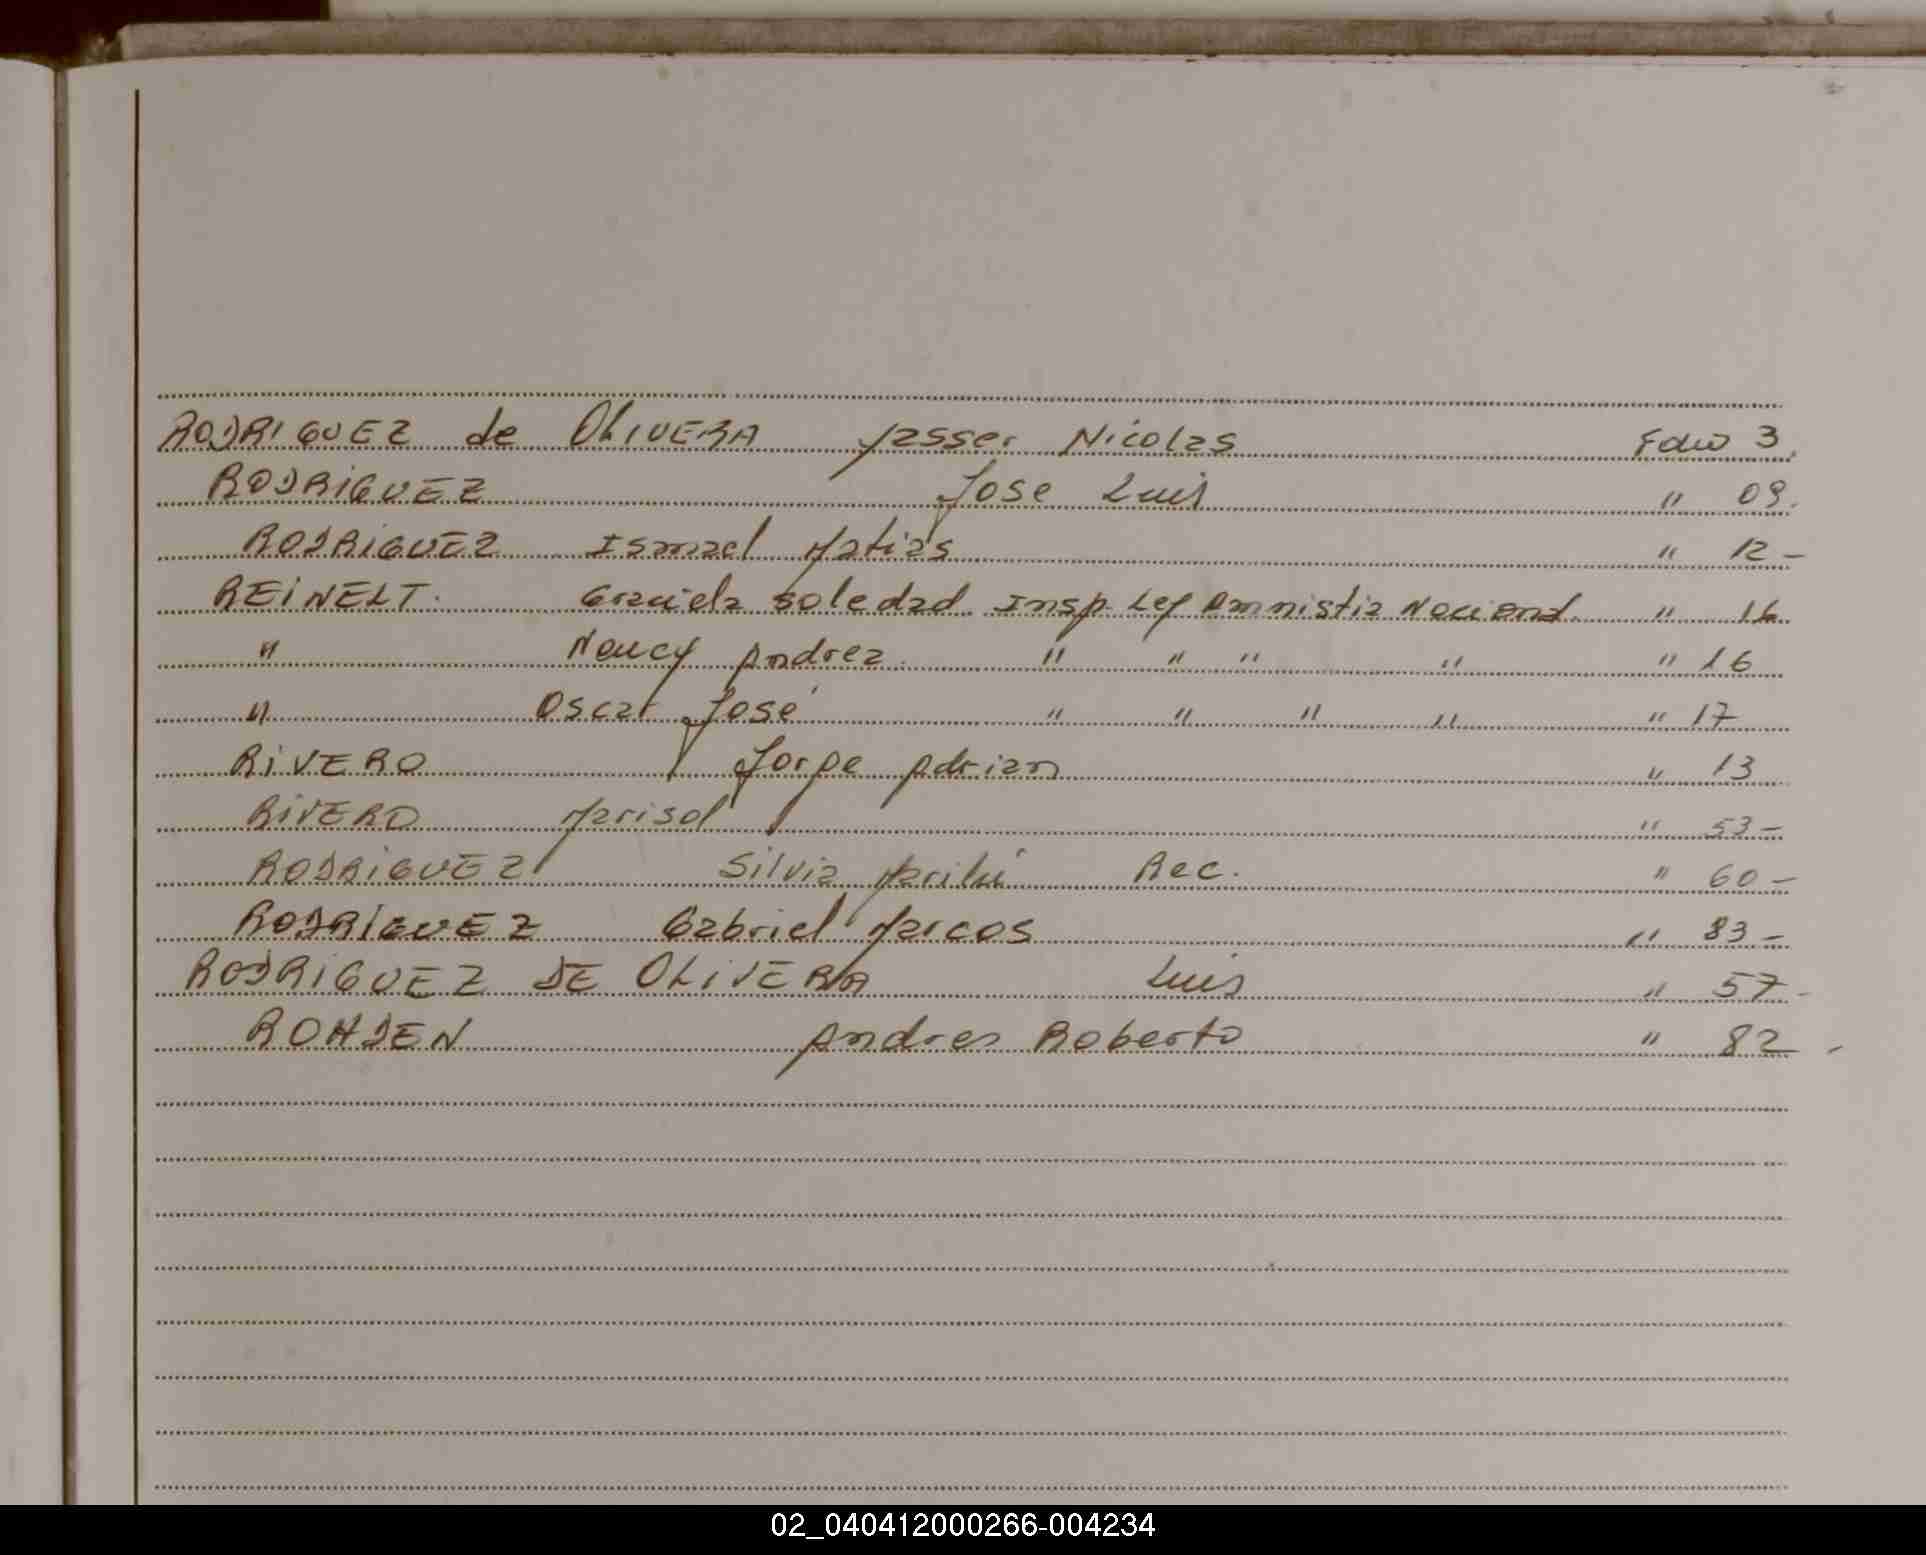 RODRIGUEZ de OLIVERA Yasser Nicolas Folio 3.
RODRIGUEZ Jose Luis " 09.
RODRIGUEZ Ismael Matias " 12-
REINELT. Graciela Soledad Insp Ley Amnistia Nacional. " 16
" Nancy Andrea. " " " " " 16
" Oscar José " " " " " 17
RIVERO Jorge Adrian " 13
RIVERO Marisol " 53-
RODRIGUEZ Silvia Marilú Rec. " 60-
RODRIGUEZ Gabriel Marcos " 83-
RODRIGUEZ DE OLIVERA Luis " 57-
ROHDEN Andres Roberto " 82-
02_040412000266-004234